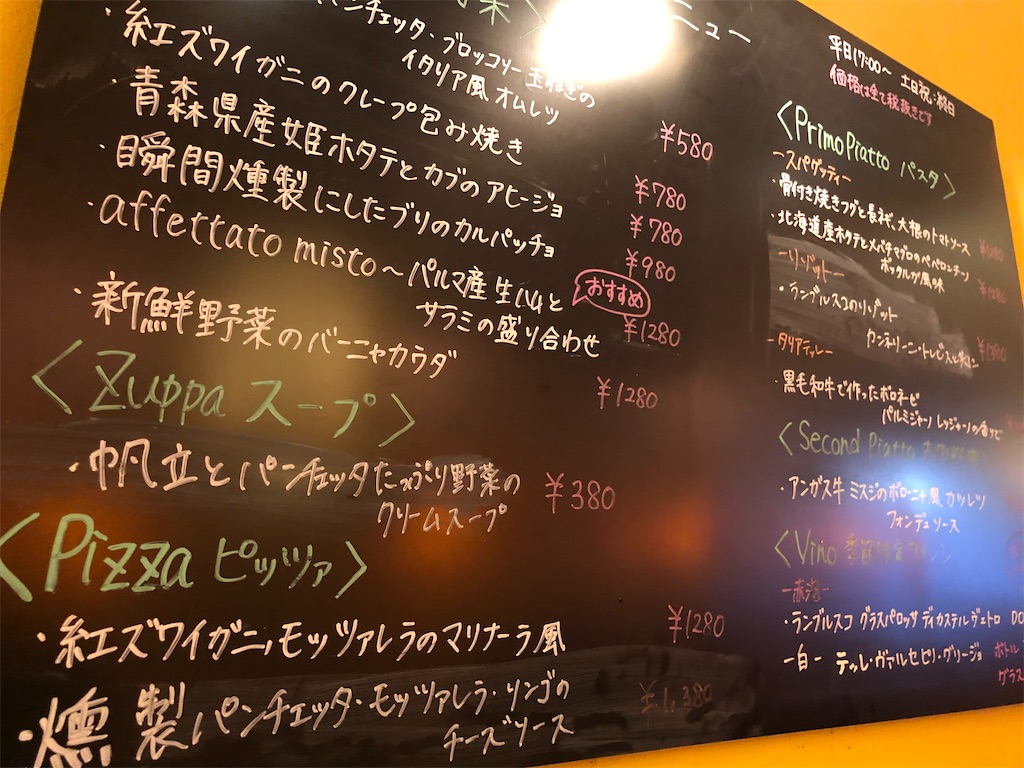 ニュー
パンチェッタ・ブロッコリー玉ねぎの
イタリア風オムレツ
¥580
・紅ズワイガニのクレープ包み焼き
¥780
・青森県産姫ホタテとカブのアヒージョ
¥780
・瞬間燻製にしたブリのカルパッチョ
¥980
・affettato misto～パルマ産生ハムと
サラミの盛り合わせ
おすすめ
¥1280
・新鮮野菜のバーニャカウダ
¥1280
〈Zuppa スープ〉
・帆立とパンチェッタたっぷり野菜の
クリームスープ
¥380
〈Pizza ピッツァ〉
・紅ズワイガニ,モッツァレラのマリナーラ風
¥1280
・燻製パンチェッタ・モッツァレラ・リンゴの
チーズソース
¥1,380
平日17:00～ 土日祝・終日
価格は全て税抜きです
〈PrimoPiatto パスタ〉
ースパゲッティー
・骨付き焼きフグと長ネギ、大根のトマトソース
・北海道産ホタテとメバチマグロのペペロンチーノ
ボッタルガ風味
ーリゾットー
・ランブルスコのリゾット
ータリアテッレー
・黒毛和牛で作ったボロネーゼ
パルミジャーノレッジャーノの香りで
〈Second Piatto
・アンガス牛 ミスジのボローニャ風カツレツ
フォンデュソース
〈Vino 季節限定ワイン
ー赤泡ー
・ランブルスコ グラスパロッサ ディカステルヴェトロ DO
ー白ー テッレ・ヴァルセ ピノ・グリージョ
ボトル
グラス